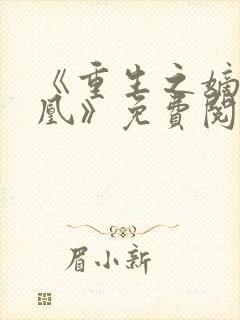 《重生之嫡
凰》免費閱
眉小新